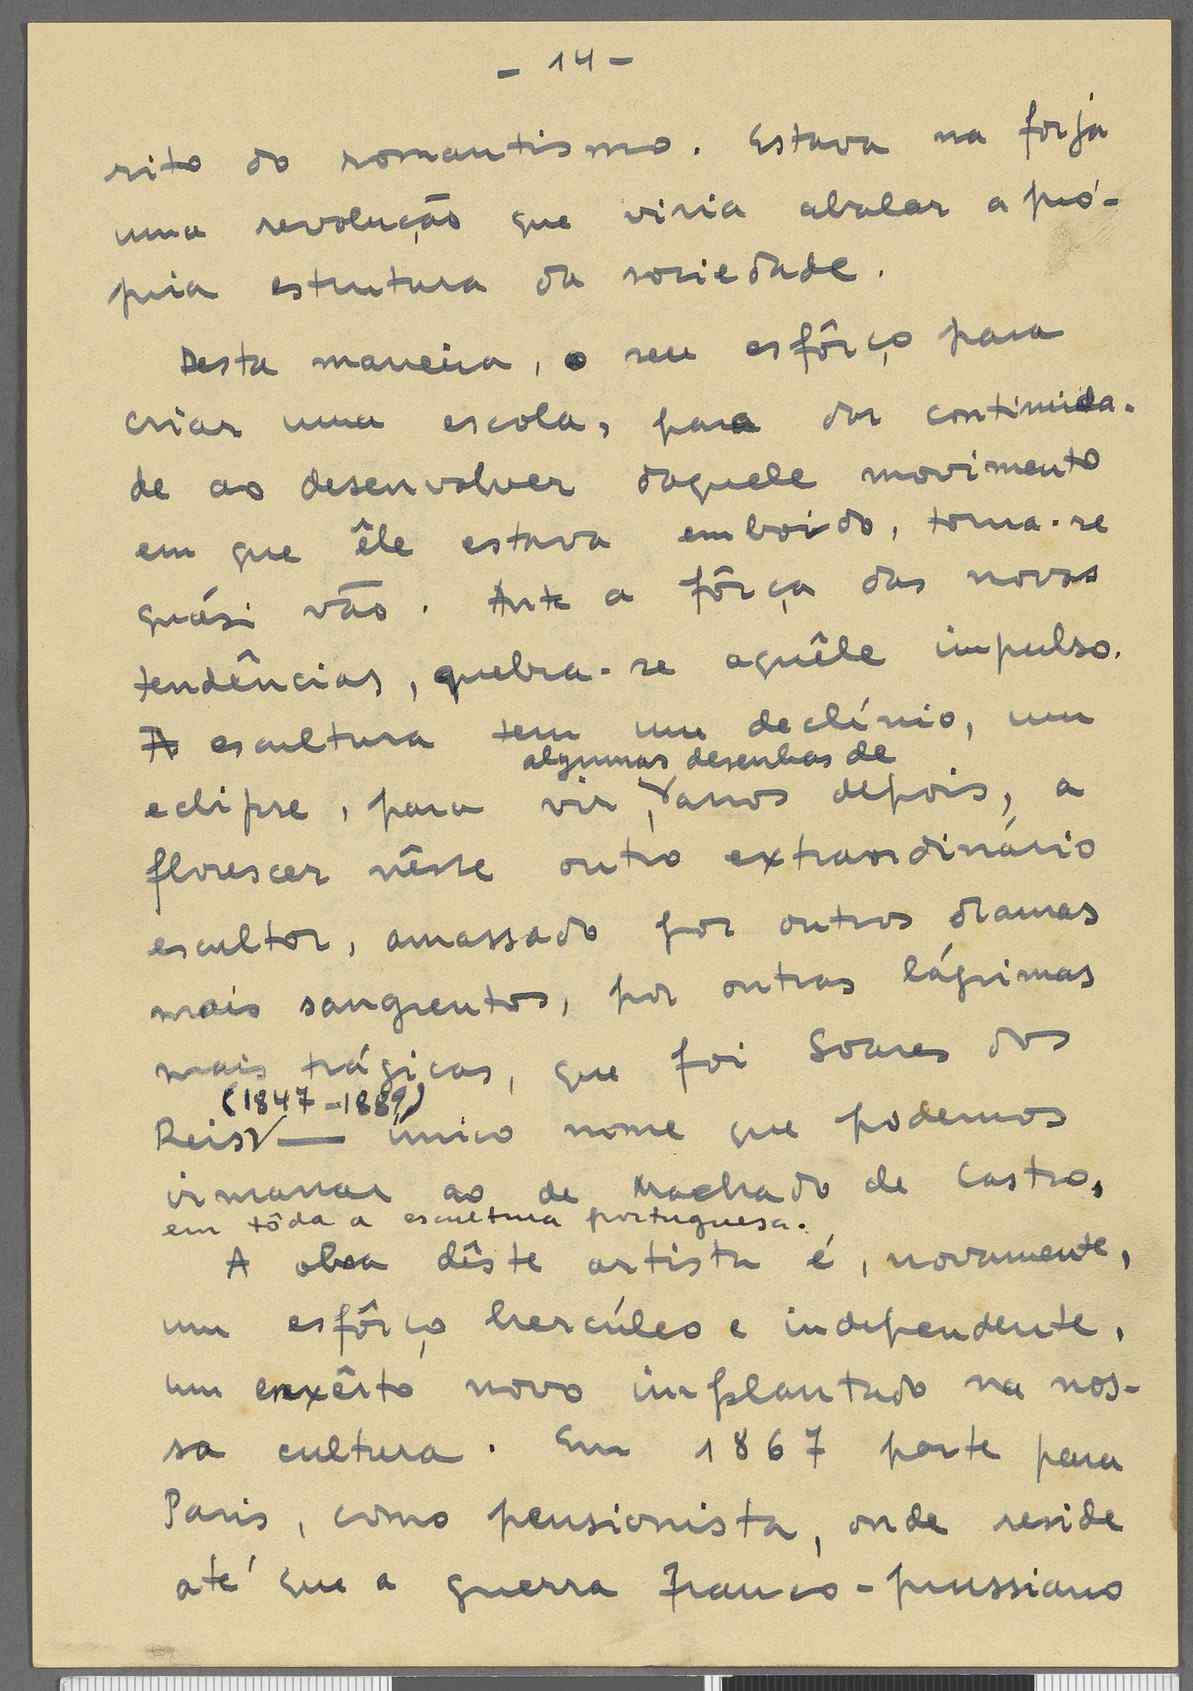 - 14 -
rito do romantismo. Estava na forja
uma revolução que viria abalar a pró-
pria estrutura da sociedade.
Desta maneira, o seu esfôrço para
criar uma escola, para dar continuida-
de ao desenvolver daquele movimento
em que êle estava embuído, torna-se
quási vão. Ante a fôrça das novas
tendências, quebra-se aquêle impulso.
A escultura tem um declínio, um
algumas desenhas de
eclipse, para vir, anos depois, a
florescer nêste outro extraordinário
escultor, amassado por outros dramas
mais sangrentos, por outras lágrimas
mais trágicas, que foi Soares dos
(1847-1889)
Reis — único nome que podemos
irmanar ao de Machado de Castro,
em tôda a escultura portuguesa.
A obra dêste artista é, novamente,
um esfôrço hercúleo e independente,
um enxêrto novo implantado na nos-
sa cultura. Em 1867 parte para
Paris, como pensionista, onde reside
até que a guerra Franco-prussiano